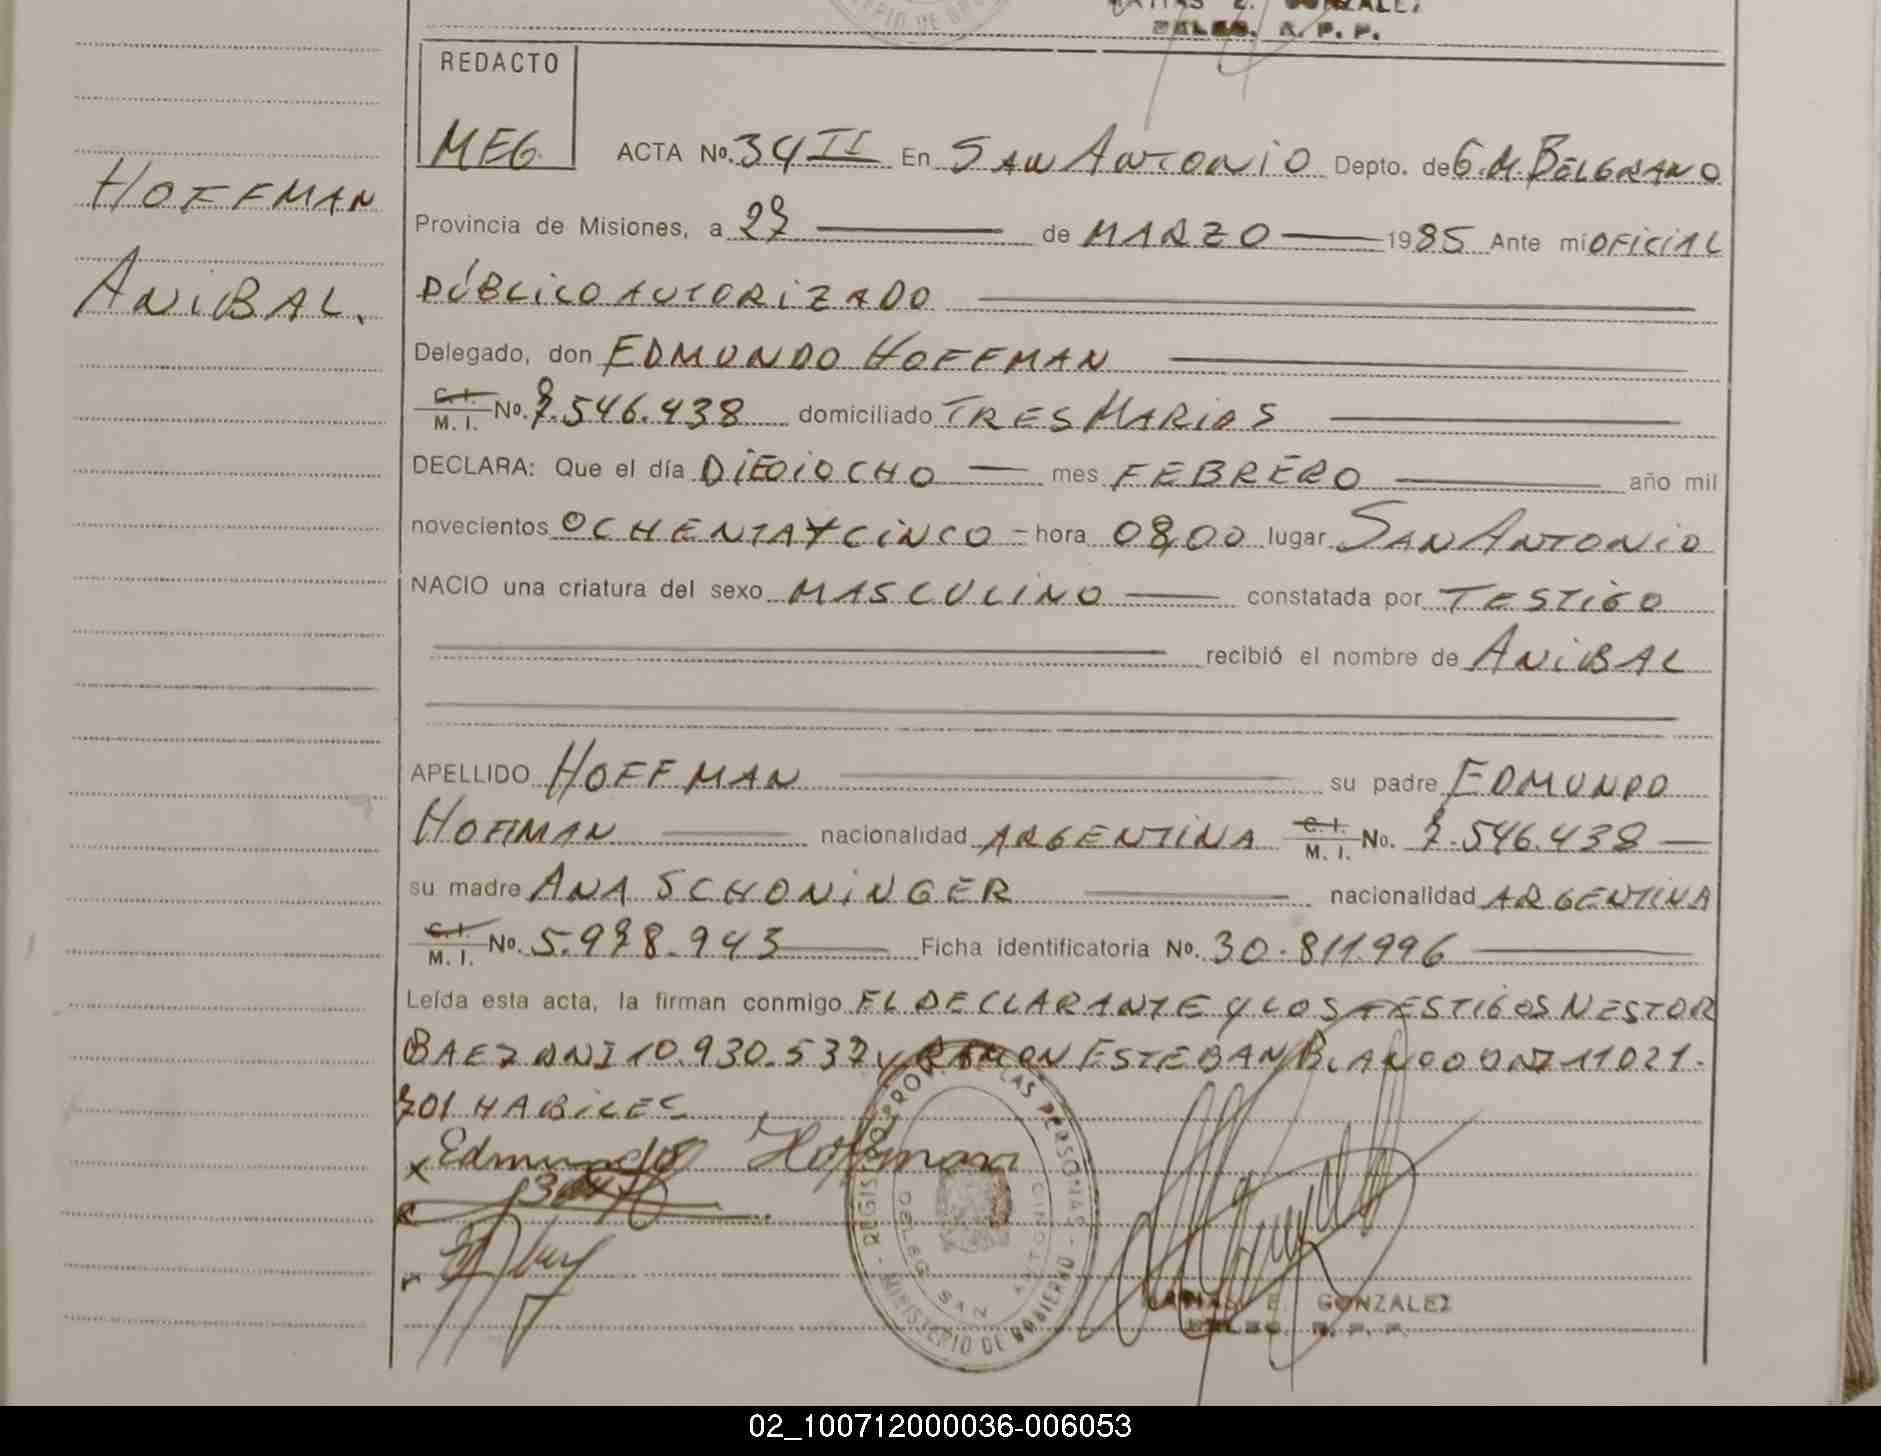 GONZALEZ
DELEG. R. P. P.
MINISTERIO DE GOB
REDACTO
MEG
ACTA Nº. 34 II En SAN ANTONIO Depto. de G.M. BELGRANO
HOFFMAN
Provincia de Misiones, a 27 de MARZO 1985 Ante mi OFICIAL
ANIBAL.
PÚBLICO AUTORIZADO
Delegado, don EDMUNDO HOFFMAN
C. I. M. I. Nº. 7.546.438 domiciliado TRES MARIAS
DECLARA: Que el día DIEOIOCHO mes FEBRERO año mil
novecientos OCHENTA Y CINCO - hora 08,00 lugar SAN ANTONIO
NACIO una criatura del sexo MASCULINO constatada por TESTIGO
recibió el nombre de ANIBAL
APELLIDO HOFFMAN su padre EDMUNDO
HOFFMAN nacionalidad ARGENTINA C. I. M. I. No. 7.546.438
su madre ANA SCHONINGER nacionalidad ARGENTINA
C. I. M. I. Nº. 5.978.943 Ficha identificatoria Nº. 30.811.996
Leída esta acta, la firman conmigo EL DECLARANTE Y LOS TESTIGOS NESTOR
BAEZ DNI 10.930.537 y RAMON ESTEBAN BLANCO DNI 11021.
701 HABILES
x Edmundo Hoffman
REGIS PROV. DE LAS PERSONAS - MINISTERIO DE GOBIERNO
DELEG. SAN ANTONIO
MATIAS E. GONZALEZ
DELEG. R. P. P.
02_100712000036-006053